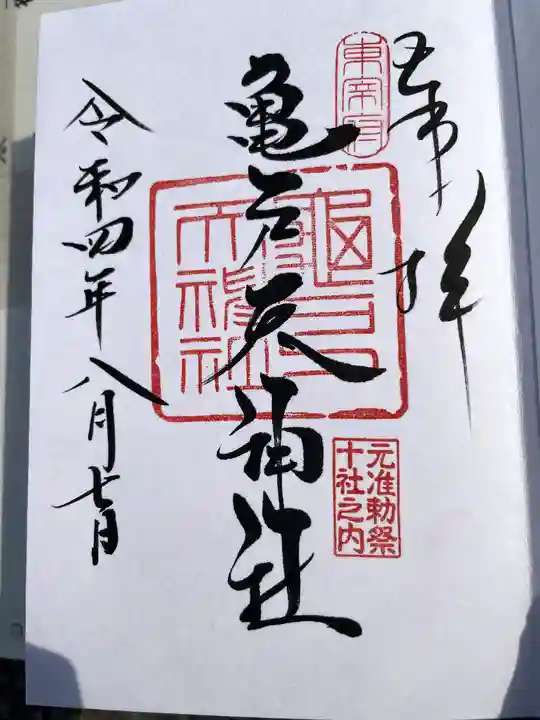 奉拝
東宰府
亀戸天神社
亀戸天神社
元准勅祭
十社之内
令和四年八月七日